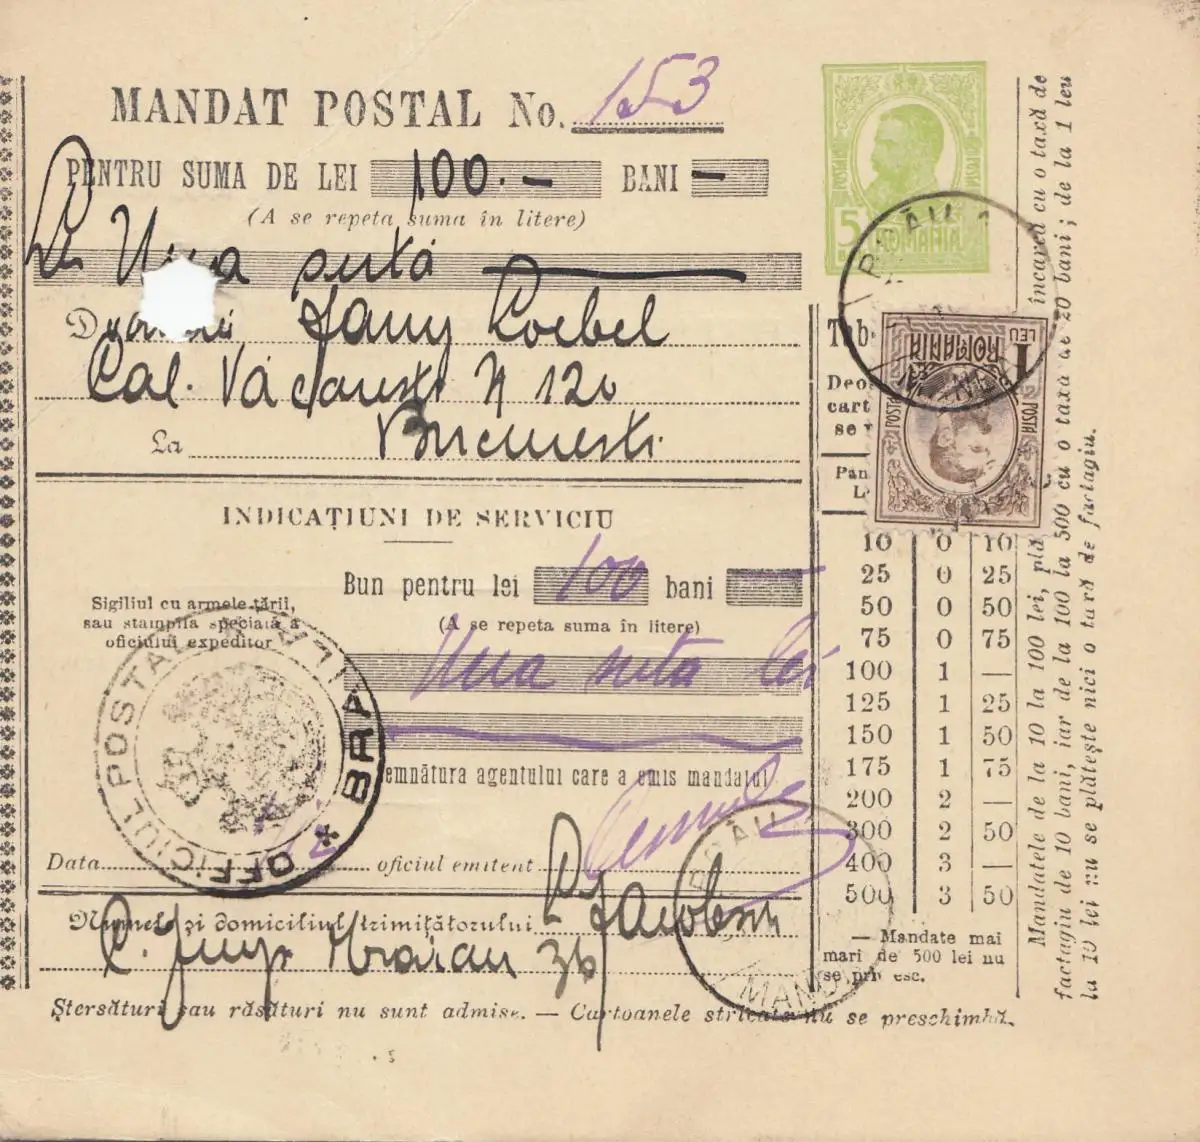 MANDAT POSTAL No. 153
PENTRU SUMA DE LEI 100.- BANI -
(A se repeta suma în litere)
Una sută
Jany Loebel
Cal. Văcăresti N 120
La Bucuresti
INDICAȚIUNI DE SERVICIU
Bun pentru lei 100 bani
(A se repeta suma în litere)
Una suta lei
Sigiliul cu armele țării,
sau stampila specială a
oficiului expeditor
OFFICIUL POSTAL BRAILA
Semnătura agentului care a emis mandatul
Data oficiul emitent
Numele și domiciliul trimițătorului
Ștersături sau răsături nu sunt admise. — Cartoanele stricate nu se preschimbă.
POSTA
POSTA
5
ROMANIA
BRĂILA
1 LEU
ROMANIA
POSTA
POSTA
10 0 10
25 0 25
50 0 50
75 0 75
100 1 —
125 1 25
150 1 50
175 1 75
200 2 —
300 2 50
400 3 —
500 3 50
— Mandate mai
mari de 500 lei nu
se primesc.
BRĂILA
MAND
Mandatele de la 10 la 100 lei, plă încarcă cu o taxă de
factagiu de 10 bani, iar de la 100 la 500 cu o taxă de 20 bani; de la 1 leu
la 10 lei nu se plătește nici o taxă de factagiu.